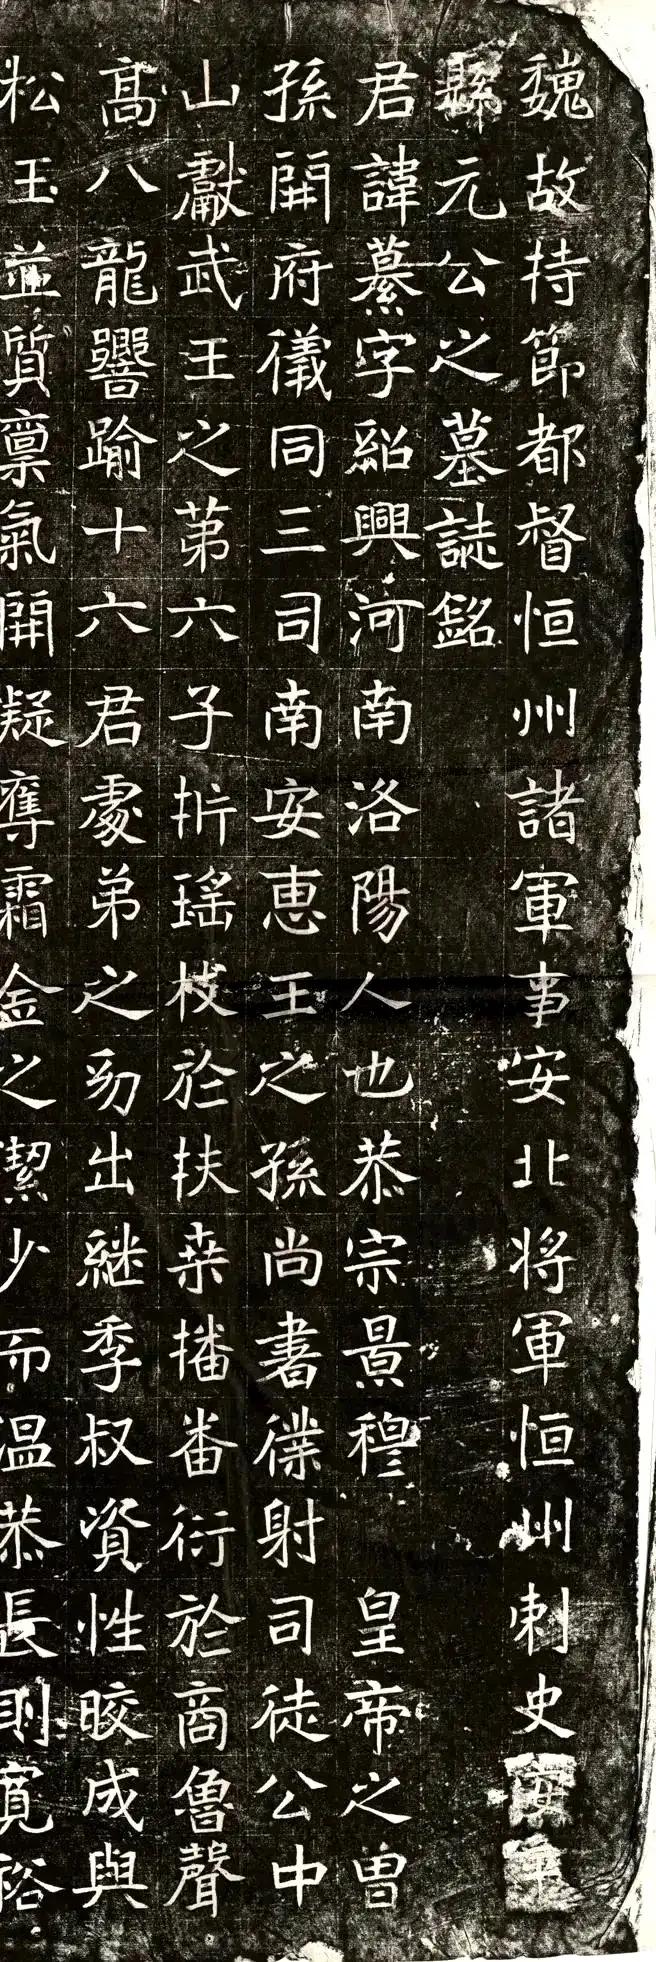 魏故持節都督恒州諸軍事安北将軍恒州刺史安平
縣元公之墓誌銘
君諱纂字紹興河南洛陽人也恭宗景穆　皇帝之曽
孫開府儀同三司南安恵王之孫尚書僕射司徒公中
山獻武王之苐六子析瑤枝於扶桒播番衍於商魯聲
髙八龍響踰十六君處弟之幼出継季叔資性晈成與
松玉並質稟氣開凝奪霜金之潔少而温恭長則寬裕